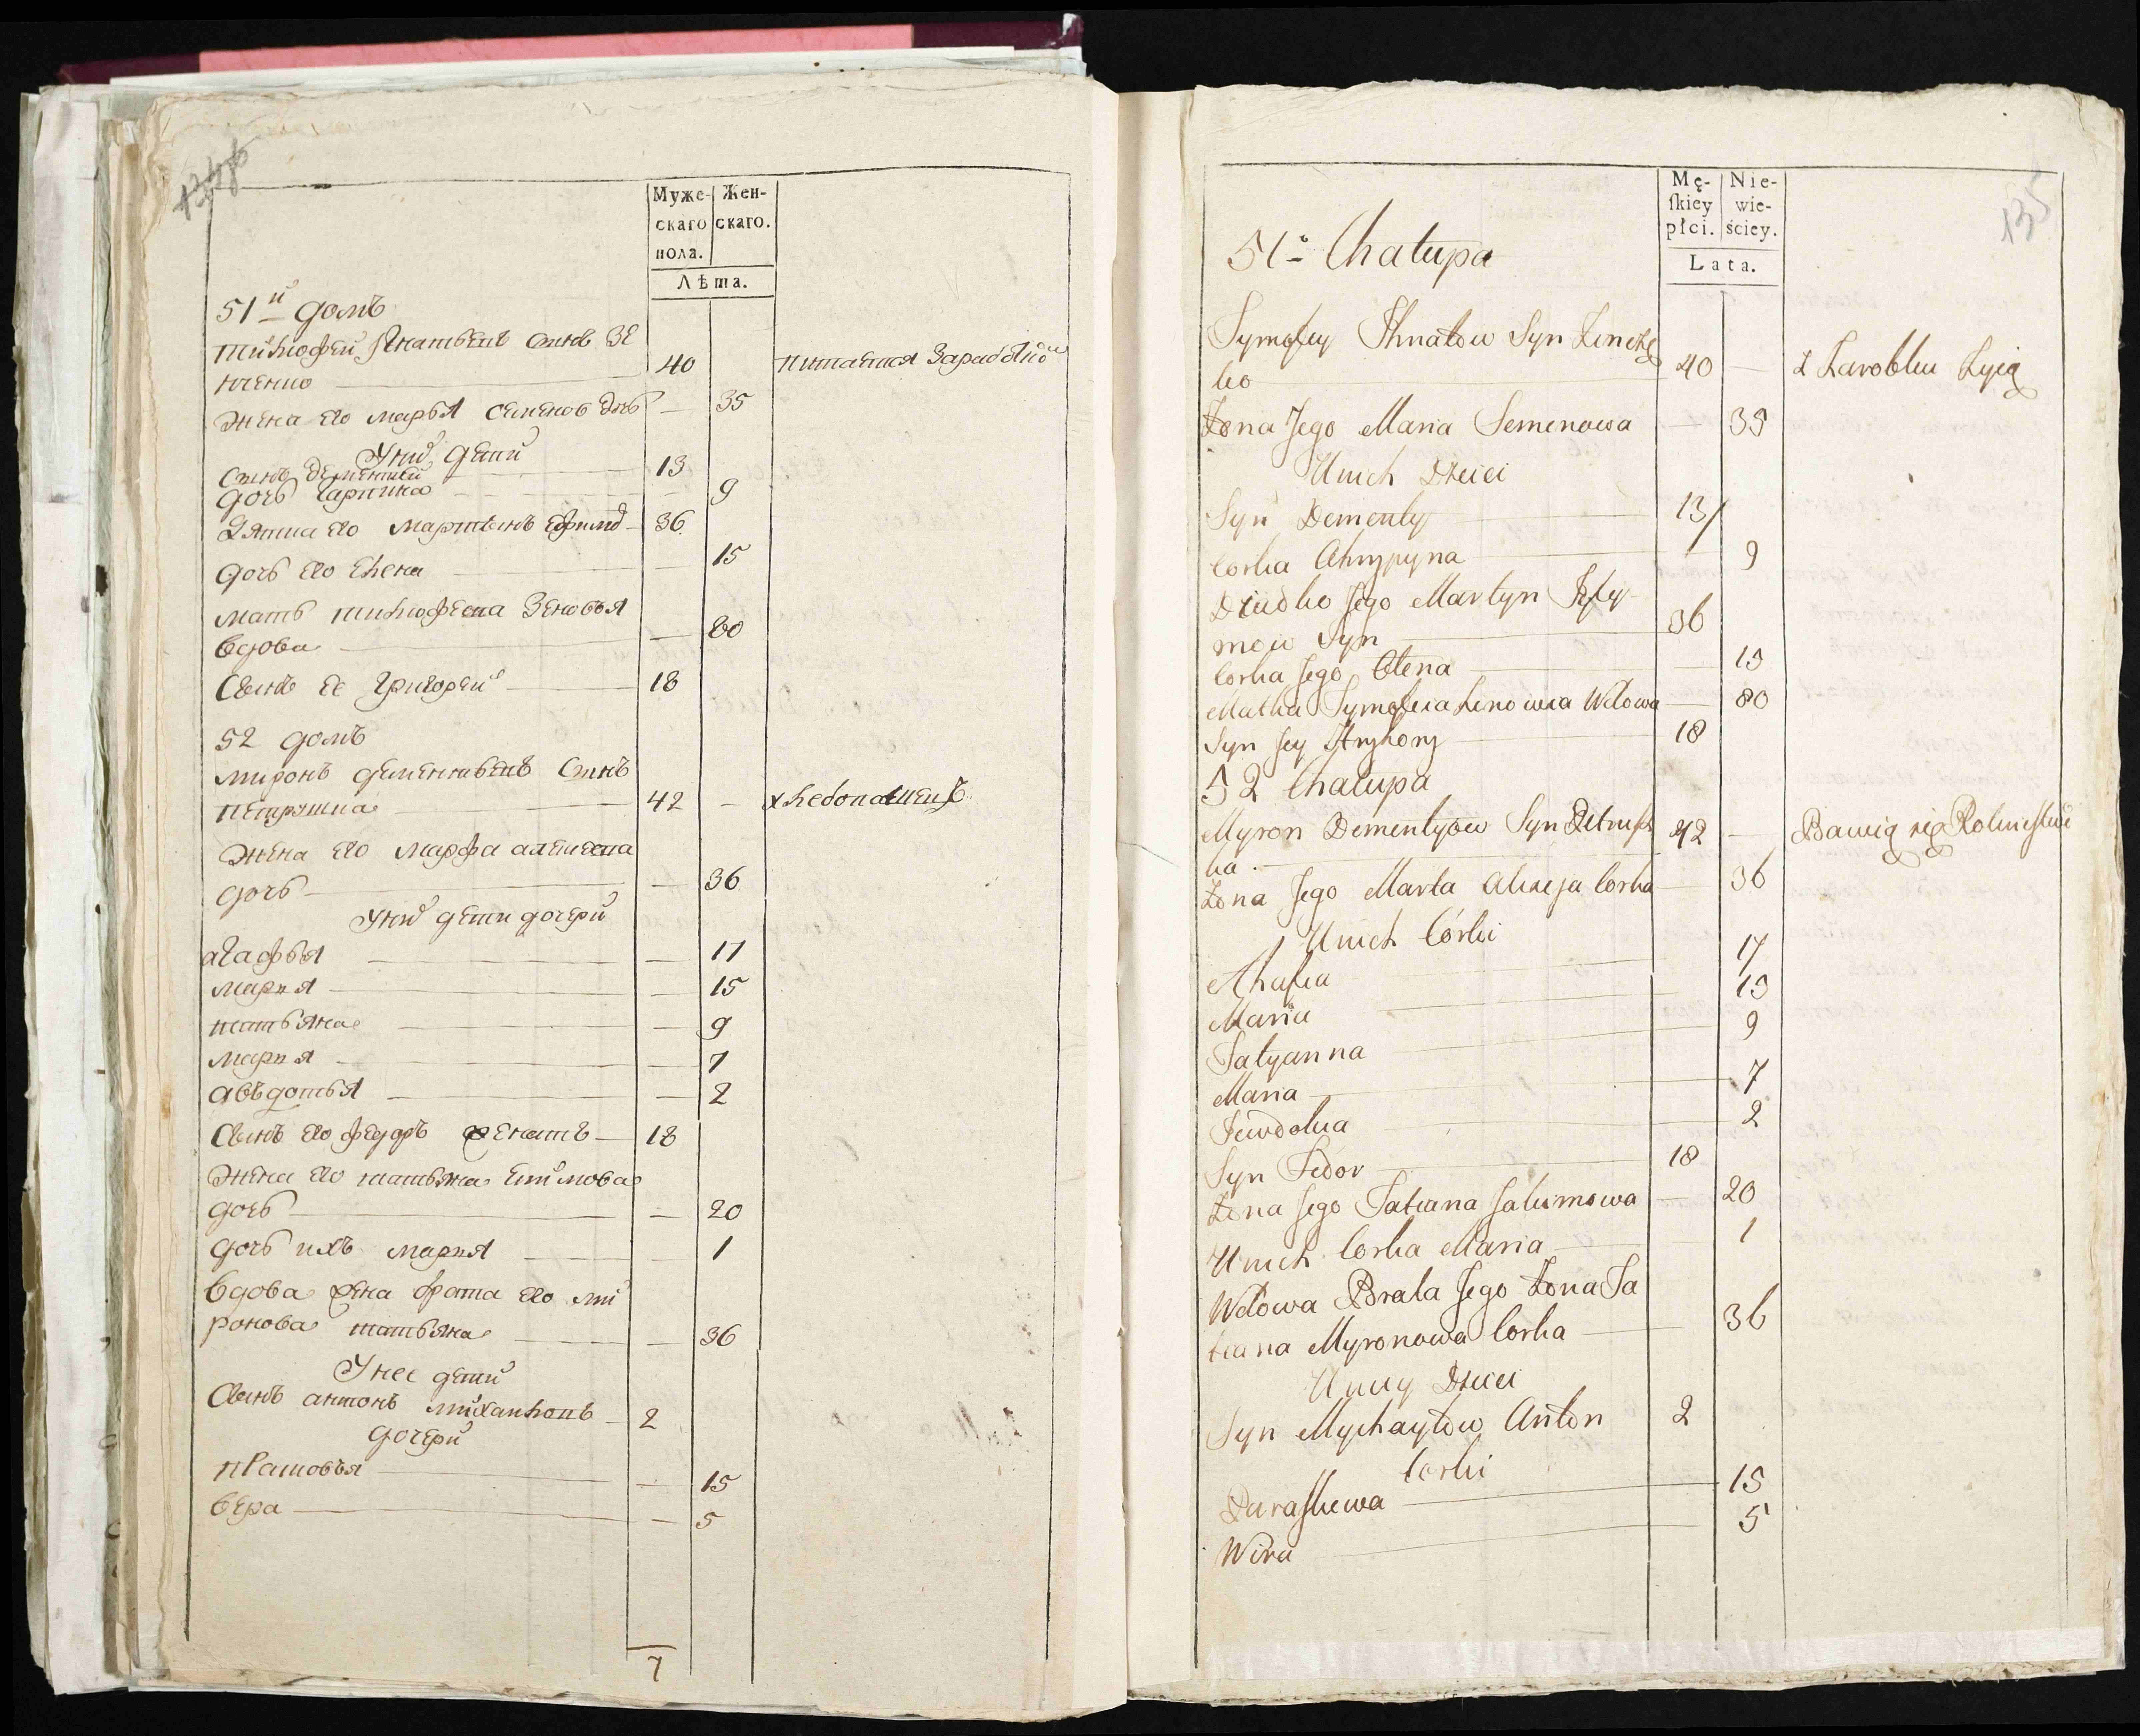 Муже-
скаго
пола.
Жен-
скаго.
Лѣта.
51й домъ
Тимофей Игнатьевъ Сынъ Зе
нченко 40 питается Заработко
Жена его марья семенов дчь — 35
Унихъ дети
Сынъ Дементей 13
дочь Гарпина 9
Дятка его мартынъ Ефимо 36
дочь его Елена 15
мать тимофеева Зеновья
вдова — 80
Сынъ ее Григорей 18
52 домъ
миронъ дементьевъ Сынъ
петрушка 42 — хлебопашецъ
Жена его марфа алексеева
дочь — 36
Унихъ дети дочери
агафья — 17
мария — 15
татьяна — 9
мария — 7
авъдотья — 2
Сынъ его федоръ женатъ — 18
Жена его татьяна екимова
дочь — 20
дочь ихъ мария — 1
вдова жена брата его ми
ронова татьяна — 36
Унее дети
Сынъ антонъ михайловъ 2
дочери
— 15
вера — 5
7
135
Mę-
ſkiey
płci.
Nie-
wie-
ściey.
Lata.
51a Chałupa
Tymofey Ihnatow Syn Zinczę
ko 40 — z Zarobku Żyią
Żona Jego Maria Semenowa — 35
Unich Dzieci
Syn Dementy 13
Corka Ahrypyna 9
Dziadko Jego Martyn Jefy-
mow Syn 36
Corka Jego Olena — 15
Matka Tymofeia Zinowia Wdowa — 80
Syn Jey Hryhory 18
52 Chałupa
Myron Dementyow Syn Petruſz
ka 42 — Bawią się Rolnictwe
Żona Jego Marta Alixeja Corka — 36
Unich Córki
Ahafia 17
Maria 15
Tatyanna 9
Maria 7
Jewdokia 2
Syn Fedor 18
Żona Jego Tatiana Jakimowa — 20
Unich Corka Maria 1
Wdowa Brata Jego Żona Ta
tiana Myronowa Corka 36
Uniey Dzieci
Syn Mychayłow Anton 2
Corki
Paraſkewa 15
Wira 5